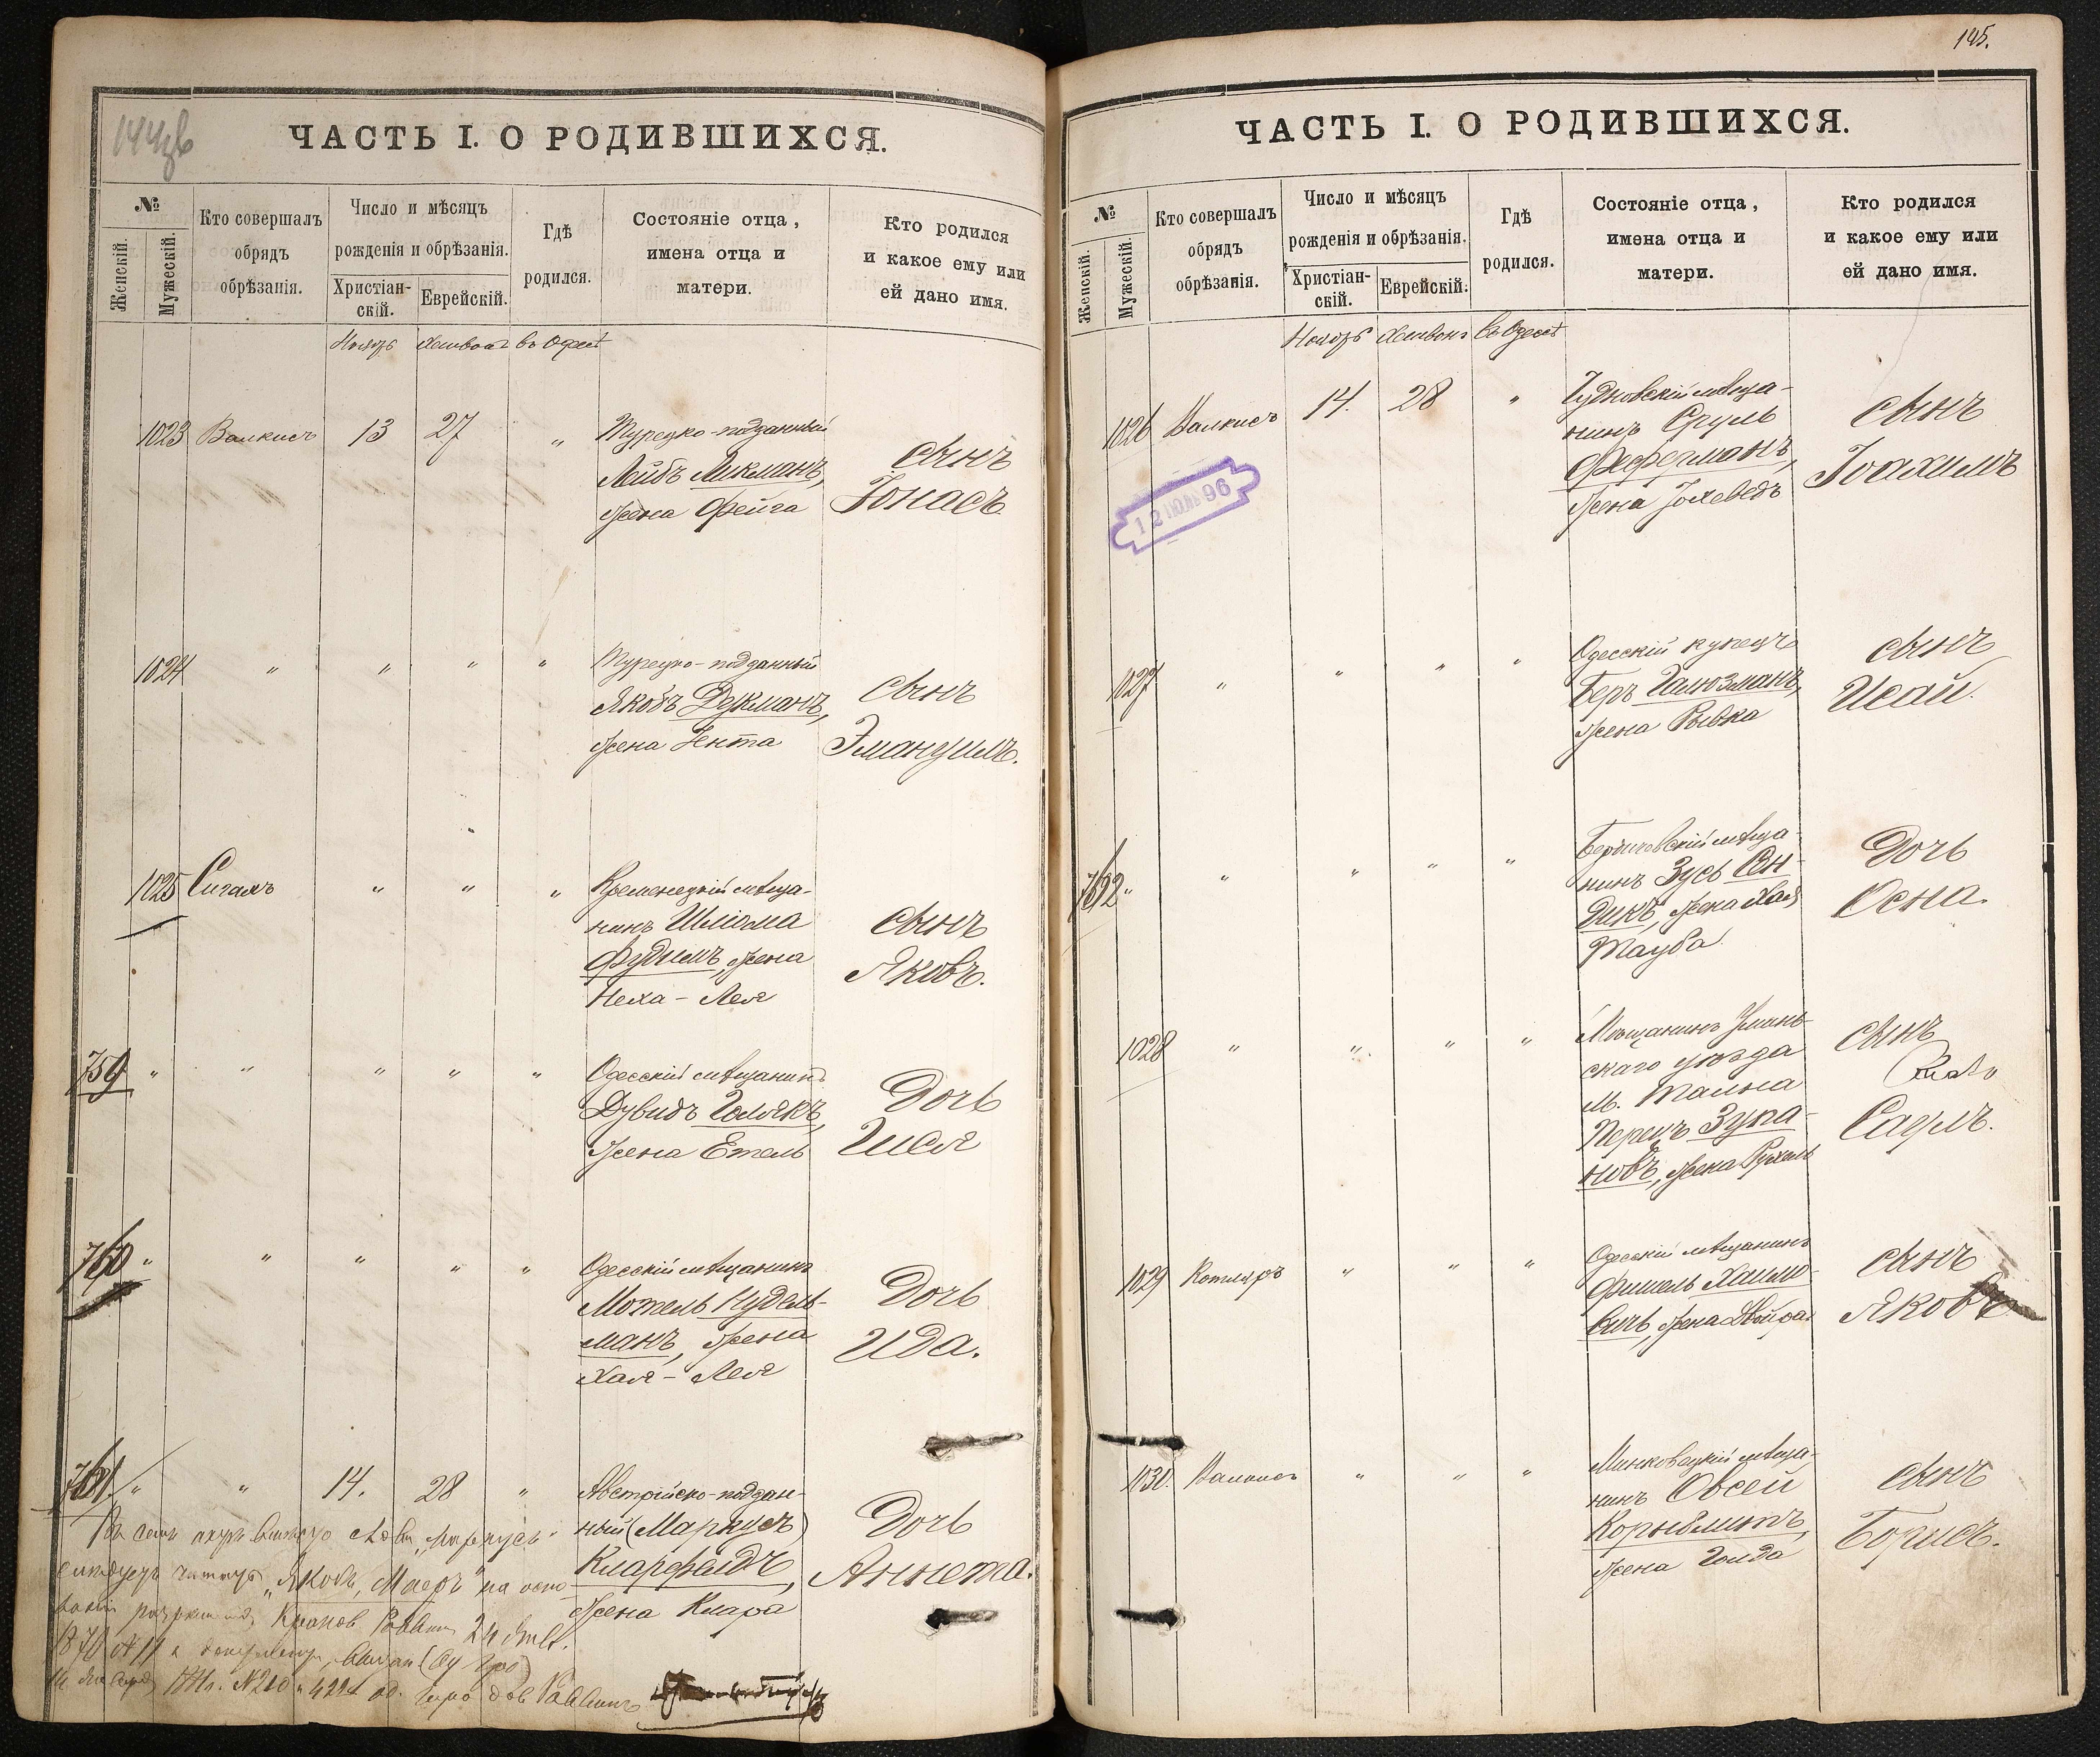 144об
ЧАСТЬ I. О РОДИВШИХСЯ.
№
Женскій.
Мужескій.
Кто совершалъ
обрядъ
обрѣзанія.
Число и мѣсяцъ
рожденія и обрѣзанія.
Христіан-
скій.
Еврейскій.
Гдѣ
родился.
Состояніе отца,
имена отца и
матери.
Кто родился
и какое ему или
ей дано имя.
Ноябрь Хешвонъ въ Одессѣ
1023 Валкисъ 13 27 "
Турецко-подданный
Лейбъ Ликманъ,
жена Фейга
сынъ
Іонасъ
1024 " " " "
Турецко-подданный
Якобъ Дукманъ,
жена Ента
сынъ
Эмануилъ.
1025 Сигалъ " " "
Кременецкій мѣща-
нинъ Шліома
Фудимъ, жена
Неха-Лея
сынъ
Яковъ.
759 " " " " "
Одесскій мѣщанинъ
Дувидъ Голякъ,
жена Етель
Дочь
760 " " " " "
Одесскій мѣщанинъ
Мотель Нудель-
манъ, жена
Хая-Лея
Дочь
Ида.
761 " " 14. 28 "
Австрійско-поддан-
ный (Маркусъ)
Кларфельдъ,
жена Клара
Дочь
Аннета.
"Маркусъ"
"Яковъ, Маеръ" на осно-
145.
ЧАСТЬ I. О РОДИВШИХСЯ.
№
Женскій.
Мужескій.
Кто совершалъ
обрядъ
обрѣзанія.
Число и мѣсяцъ
рожденія и обрѣзанія.
Христіан-
скій.
Еврейскій.
Гдѣ
родился.
Состояніе отца,
имена отца и
матери.
Кто родился
и какое ему или
ей дано имя.
Ноябрь Хешвонъ въ Одессѣ
1026 Валкисъ 14. 28 "
Чудновскій мѣща-
нинъ Сруль
Феферманъ,
жена Іохеведъ
сынъ
Іоахимъ
12 ІЮЛЬ 96
1027 " " " "
Одесскій купецъ
Беръ Галюзманъ,
жена Рывка
сынъ
Исай.
762 " " " " "
Бердичевскій мѣща-
нинъ Зусь Он-
дикъ, жена Хая
Тауба
Дочь
Осна.
1028 " " " "
Мѣщанинъ Умань-
скаго уѣзда
м. Тальна
Перецъ Зупа-
новъ, жена Рухель
сынъ
Саулъ.
1029 Котляръ " " "
Одесскій мѣщанинъ
Фишель Хаимо-
вичъ, жена Двойра
сынъ
Яковъ
1030. Валкисъ " " "
Минковецкій мѣща-
нинъ Овсей
Корнблитъ,
жена Голда
сынъ
Борисъ.